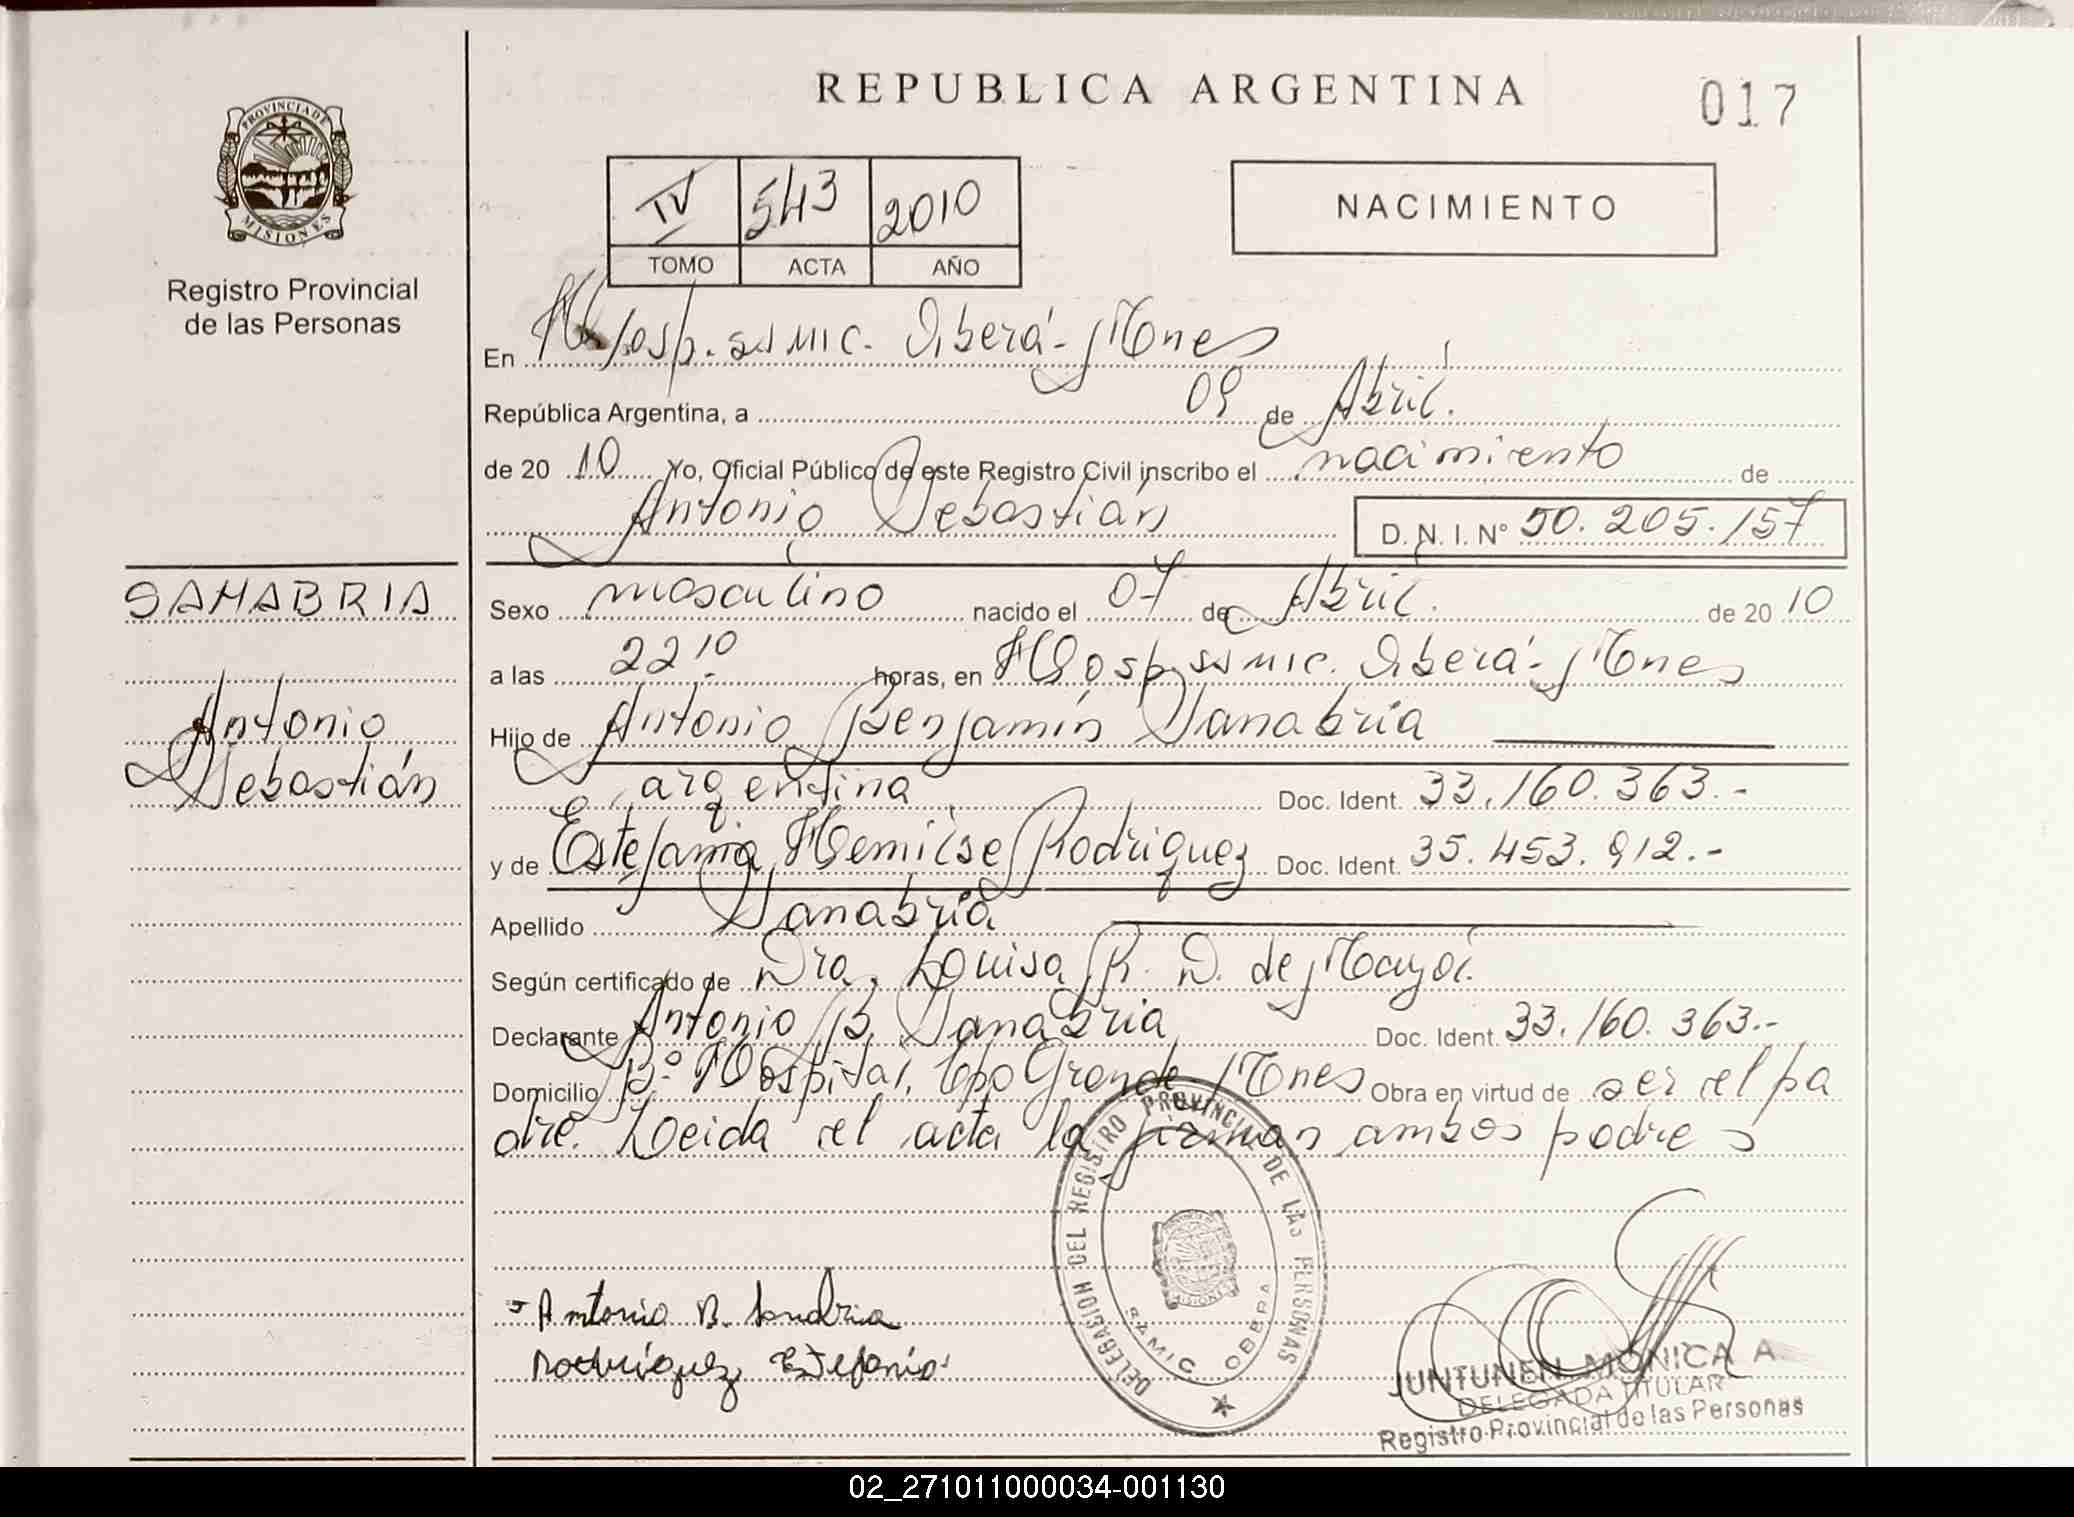 PROVINCIA DE
MISIONES
Registro Provincial
de las Personas
REPUBLICA ARGENTINA
017
IV 543 2010
TOMO ACTA AÑO
NACIMIENTO
En Hosp. SAMIC. Oberá - Mnes
República Argentina, a 09 de Abril.
de 20 10 Yo, Oficial Público de este Registro Civil inscribo el nacimiento de
Antonio Sebastián D. N. I. N° 50.205.157
SANABRIA
Antonio
Sebastián
Sexo masculino nacido el 07 de Abril. de 20 10
a las 22 10 horas, en Hosp. SAMIC. Oberá - Mnes
Hijo de Antonio Benjamín Sanabria
argentina Doc. Ident. 33.160.363.-
y de Estefania Hemilse Rodriguez Doc. Ident. 35.453.912.-
Apellido Sanabria
Según certificado de Dra. Louisa R. D. de
Declarante Antonio B. Sanabria Doc. Ident. 33.160.363.-
Domicilio B° Hospital, Cpo Grande Mnes Obra en virtud de ser el pa
dre. Leida el acta la firman ambos padres
Antonio B. Sanabria
Rodriguez Estefania
DELEGACION DEL REGISTRO PROVINCIAL DE LAS PERSONAS
SAMIC OBERA
JUNTUNEN MONICA A.
DELEGADA TITULAR
Registro Provincial de las Personas
02_271011000034-001130